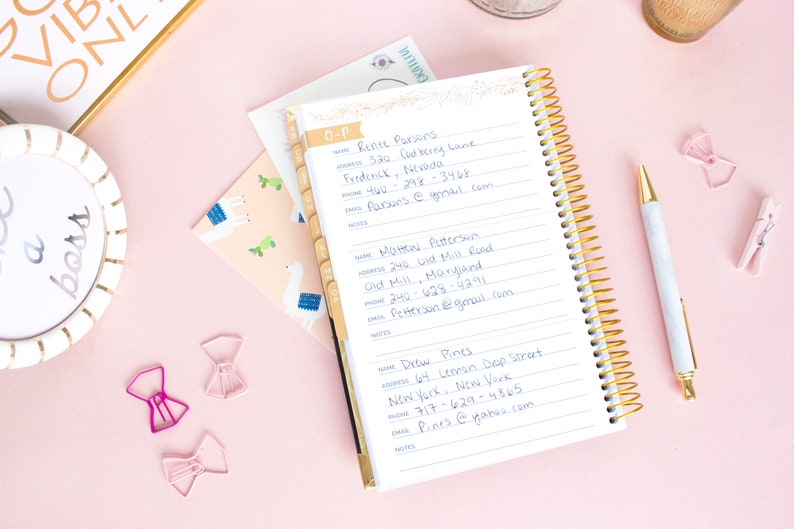 VIBES
ONLY
a
boss
O-P
NAME Renee Parsons
ADDRESS 320 Cadberry Lane
Frederick, Nevada
PHONE 460-298-3468
EMAIL Parsons@gmail.com
NOTES
NAME Mattew Petterson
ADDRESS 240 Old Mill Road
Old Mill, Maryland
PHONE 240-628-4291
EMAIL Petterson@gmail.com
NOTES
NAME Drew Pines
ADDRESS 64 Lemon Drop Street
New York, New York
PHONE 717-629-4865
EMAIL Pines@yahoo.com
NOTES